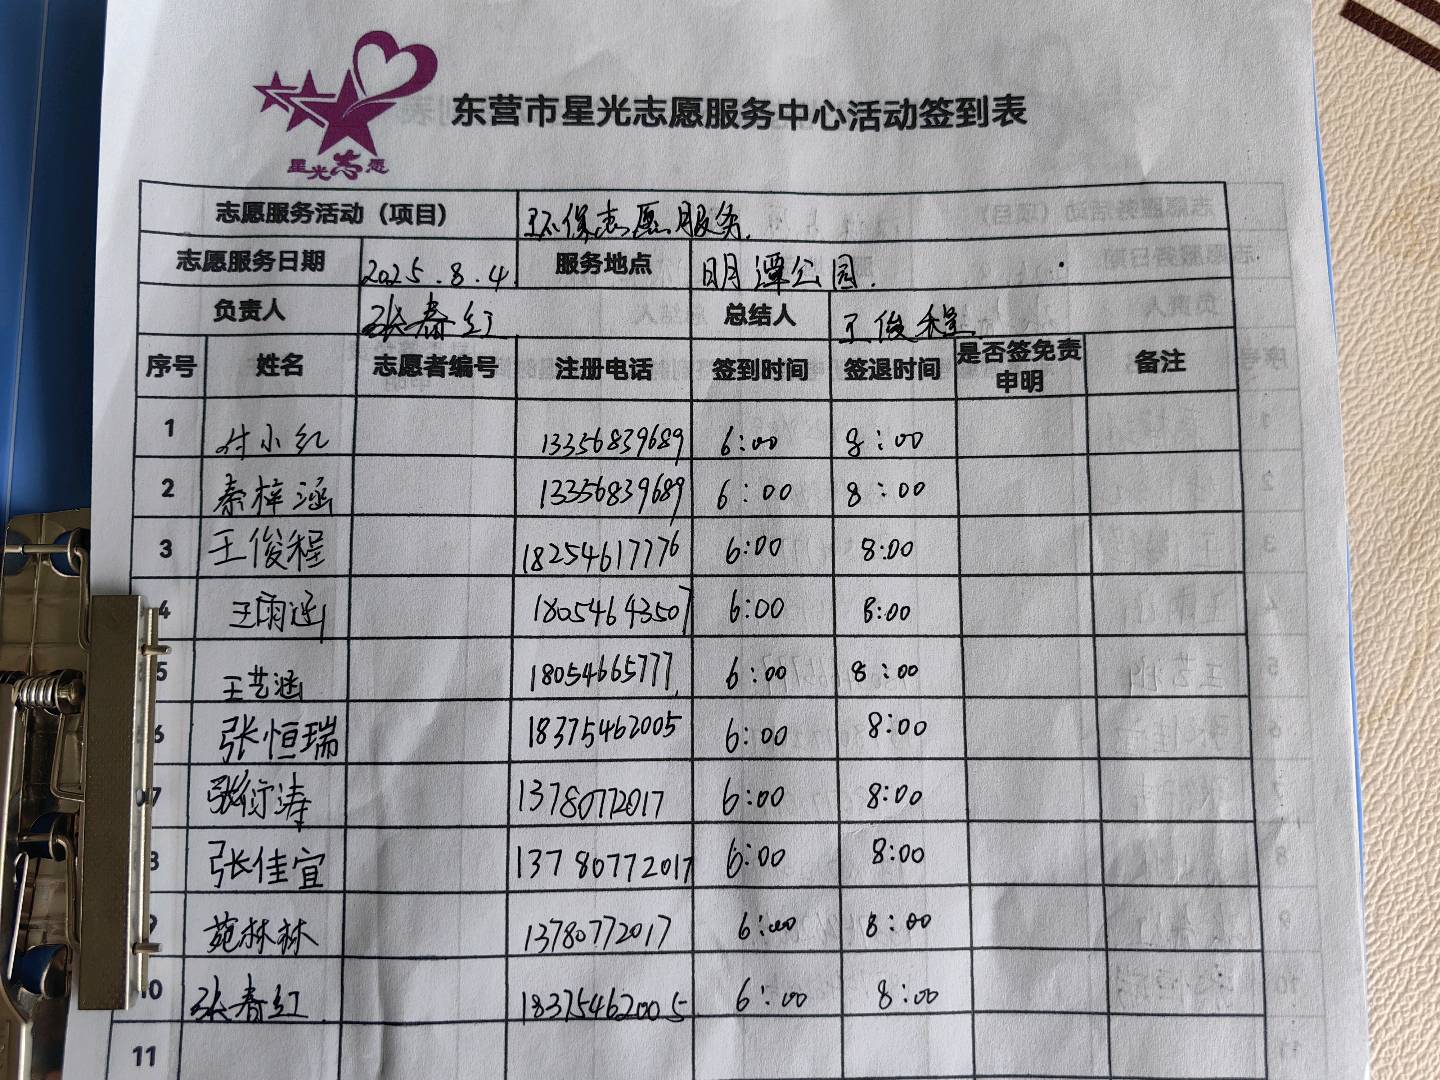 星光志愿
东营市星光志愿服务中心活动签到表
志愿服务活动（项目） 环保志愿服务.
志愿服务日期 2025.8.4. 服务地点 明潭公园.
负责人 张春红 总结人 王俊程
序号 姓名 志愿者编号 注册电话 签到时间 签退时间 是否签免责申明 备注
1 付小红 13356839689 6:00 8:00
2 秦梓涵 13356839689 6:00 8:00
3 王俊程 18254617776 6:00 8:00
4 王雨涵 18054643507 6:00 8:00
5 王艺涵 18054665777 6:00 8:00
6 张恒瑞 18375462005 6:00 8:00
7 张衍涛 13780772017 6:00 8:00
8 张佳宜 13780772017 6:00 8:00
9 苑林林 13780772017 6:00 8:00
10 张春红 18375462005 6:00 8:00
11